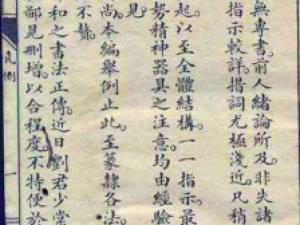 無專書。前人緒論所及。非失諸
指示較詳。措詞尤極淺近。凡稍
起以至全體結構。一一指示。最
勢精神器具之注意。均由經驗
尚。本編舉例止此。至篆隸各法。
不贅。
和之書法正傳。近日劉君少棠
鄙見刪增。以合程度。不特便於
凡例
一